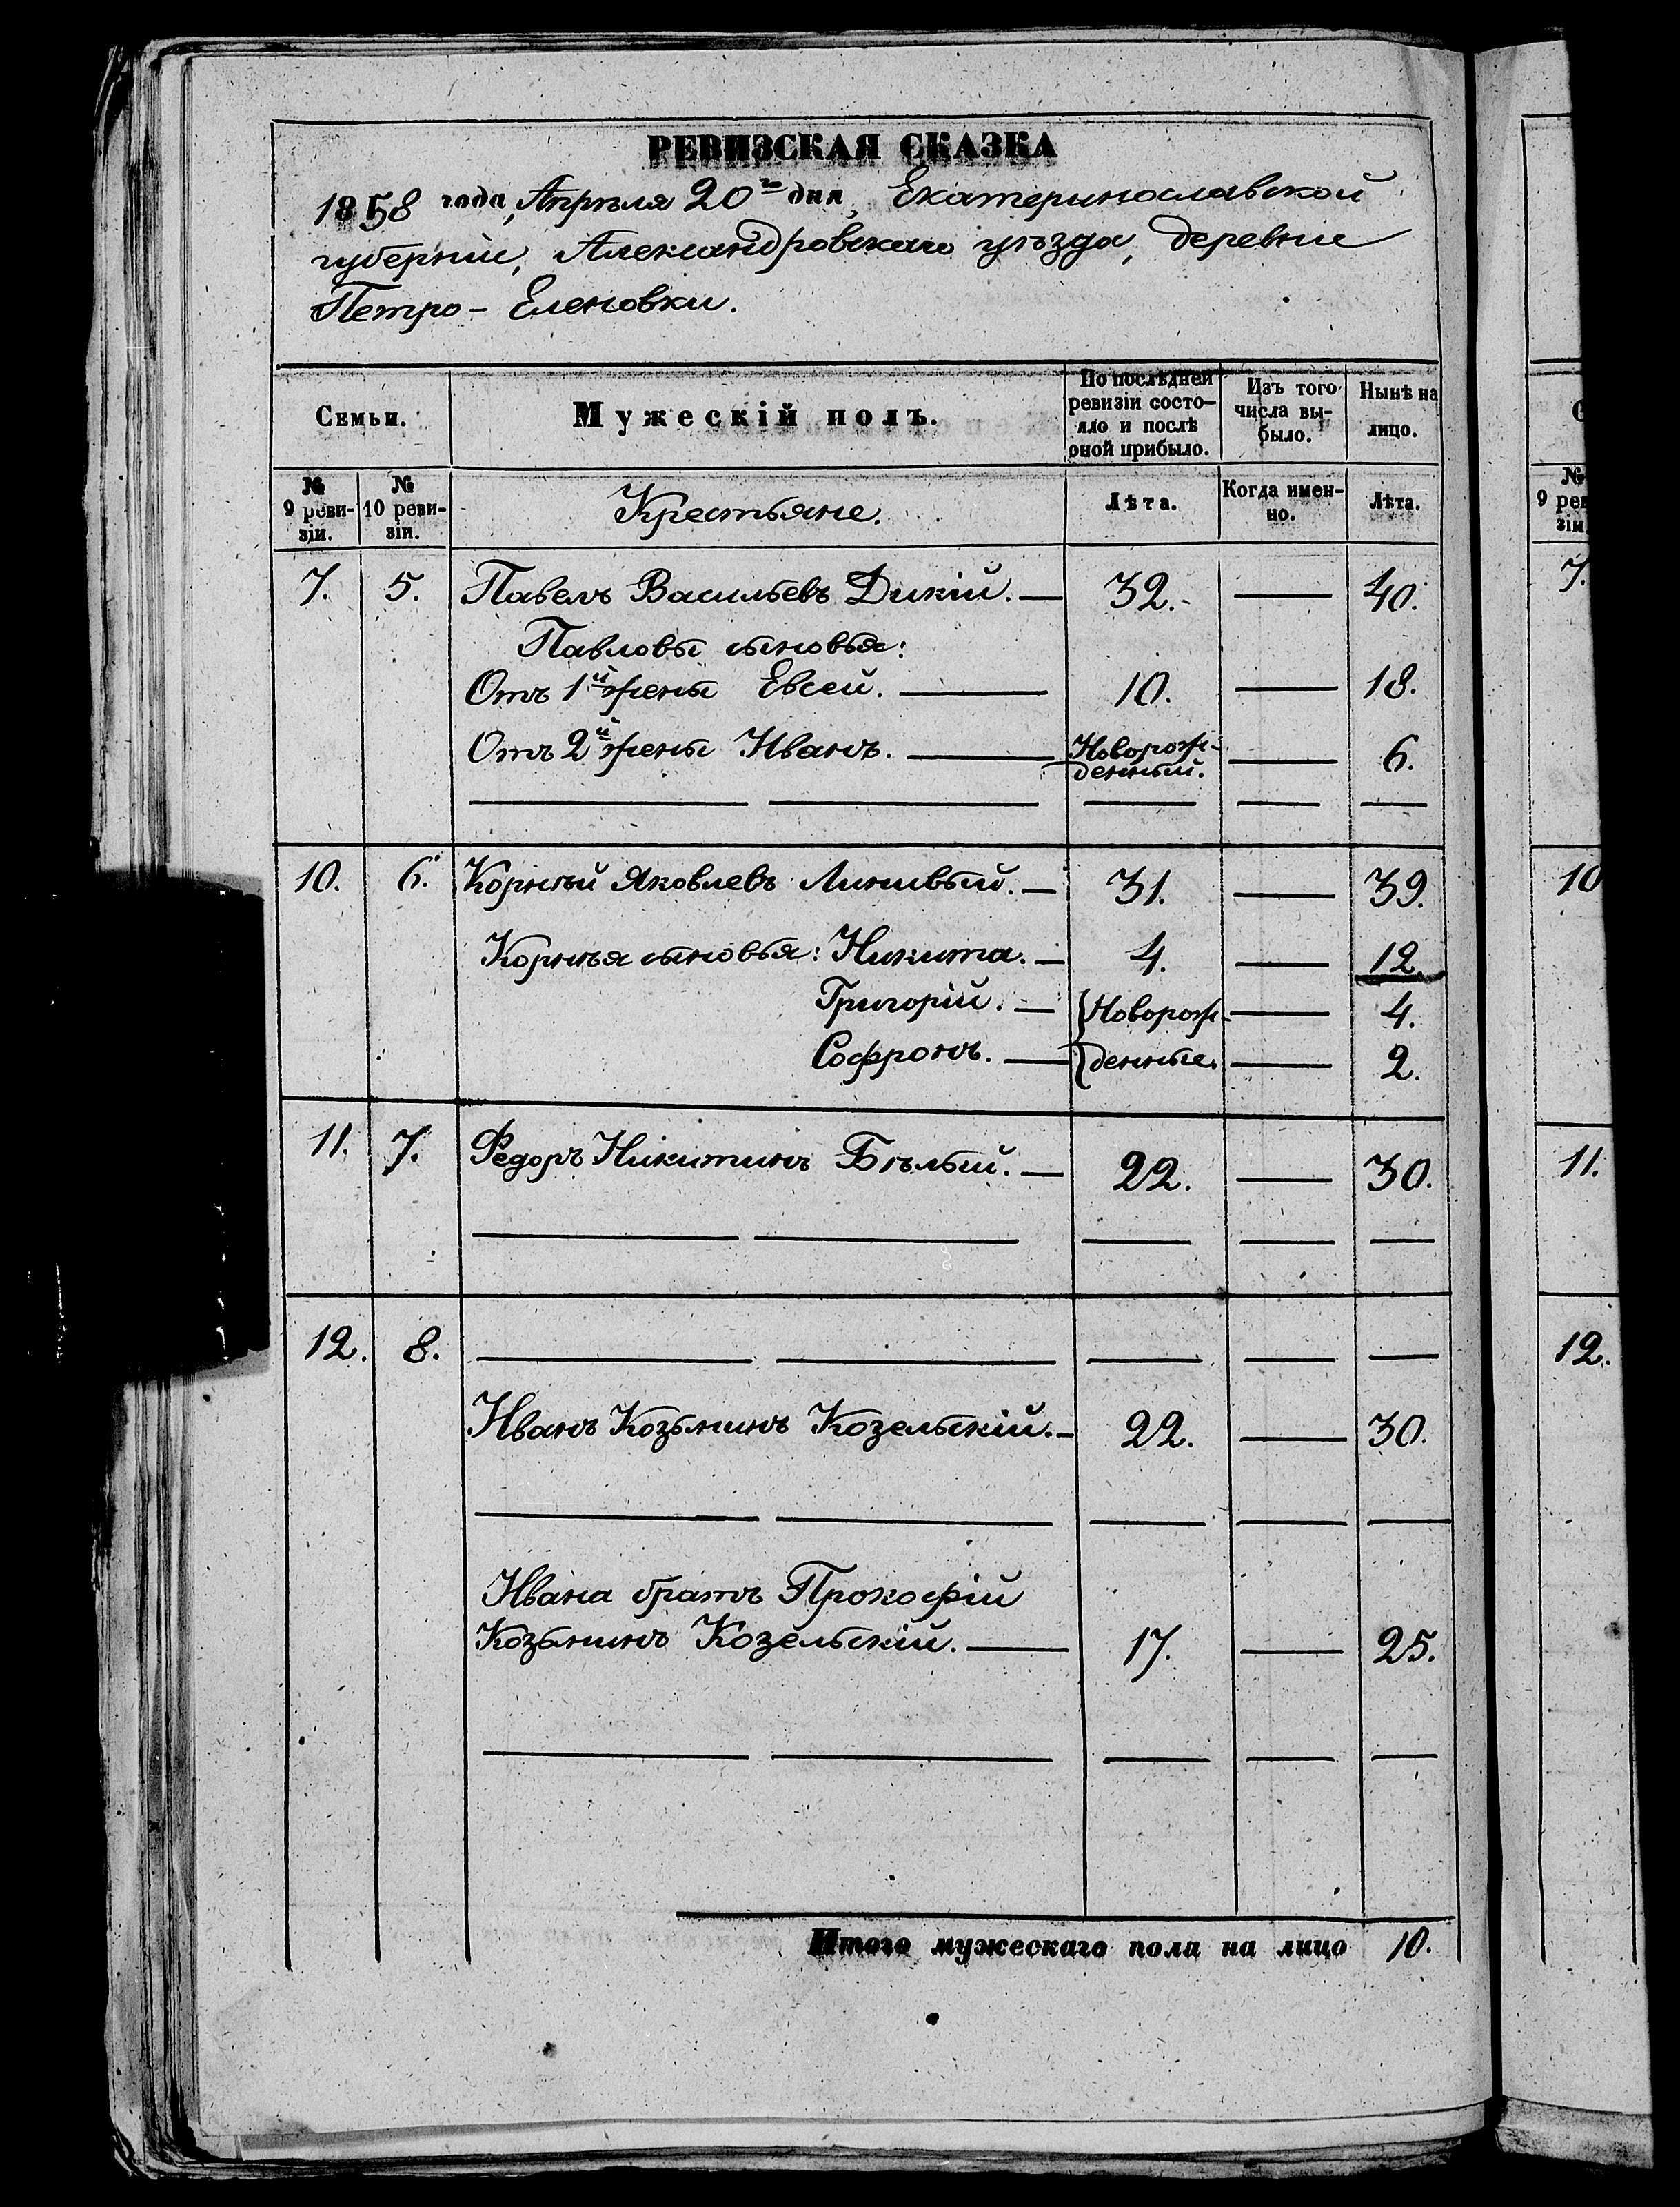 РЕВИЗСКАЯ СКАЗКА
1858 года, Апрѣля 20го дня, Екатеринославской
губерніи, Александровскаго уѣзда, деревни
Петро-Еленовки.
Семьи.
Мужескій полъ.
По послѣдней
ревизіи состо-
яло и послѣ
оной прибыло.
Изъ того
числа вы-
было.
Нынѣ на
лицо.
№
9 реви-
зіи.
№
10 реви-
зіи.
Крестьяне.
Лѣта.
Когда имен-
но.
Лѣта.
7. 5. Павелъ Васильевъ Дикій. — 32. — 40.
Павловы сыновья:
Отъ 1й жены Евсей. — 10. — 18.
Отъ 2й жены Иванъ. — Новорож-
денный. — 6.
10. 6. Корнѣй Яковлевъ Линивый. — 31. — 39.
Корнѣя сыновья: Никита. — 4. — 12.
Григорій. — Новорож- — 4.
Софронъ. — денные. — 2.
11. 7. Федоръ Никитинъ Бѣлый. — 22. — 30.
12. 8.
Иванъ Козьминъ Козельскій. — 22. — 30.
Ивана братъ Прокофій
Козьминъ Козельскій. — 17. — 25.
Итого мужескаго пола на лицо 10.
№
9 рев
зіи
7.
10
11.
12.